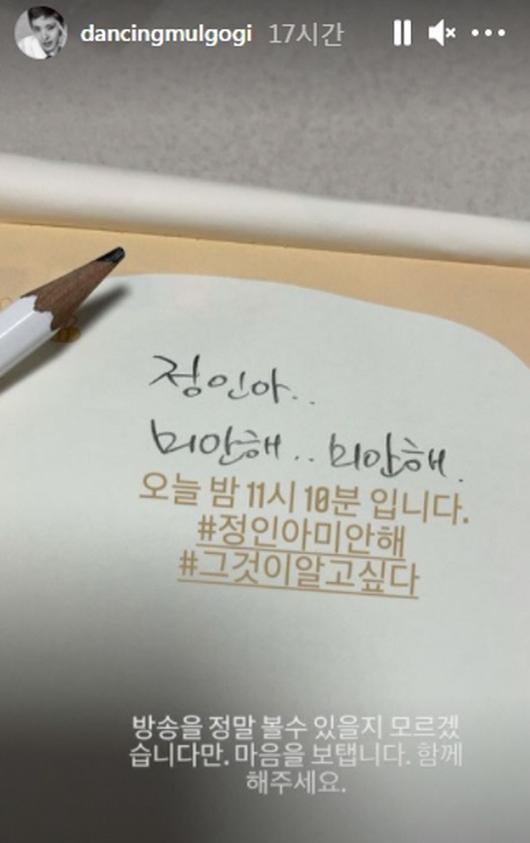 dancingmulgogi 17시간
정인아..
미안해.. 미안해.
오늘 밤 11시 10분 입니다.
#정인아미안해
#그것이알고싶다
방송을 정말 볼수 있을지 모르겠
습니다만. 마음을 보탭니다. 함께
해주세요.